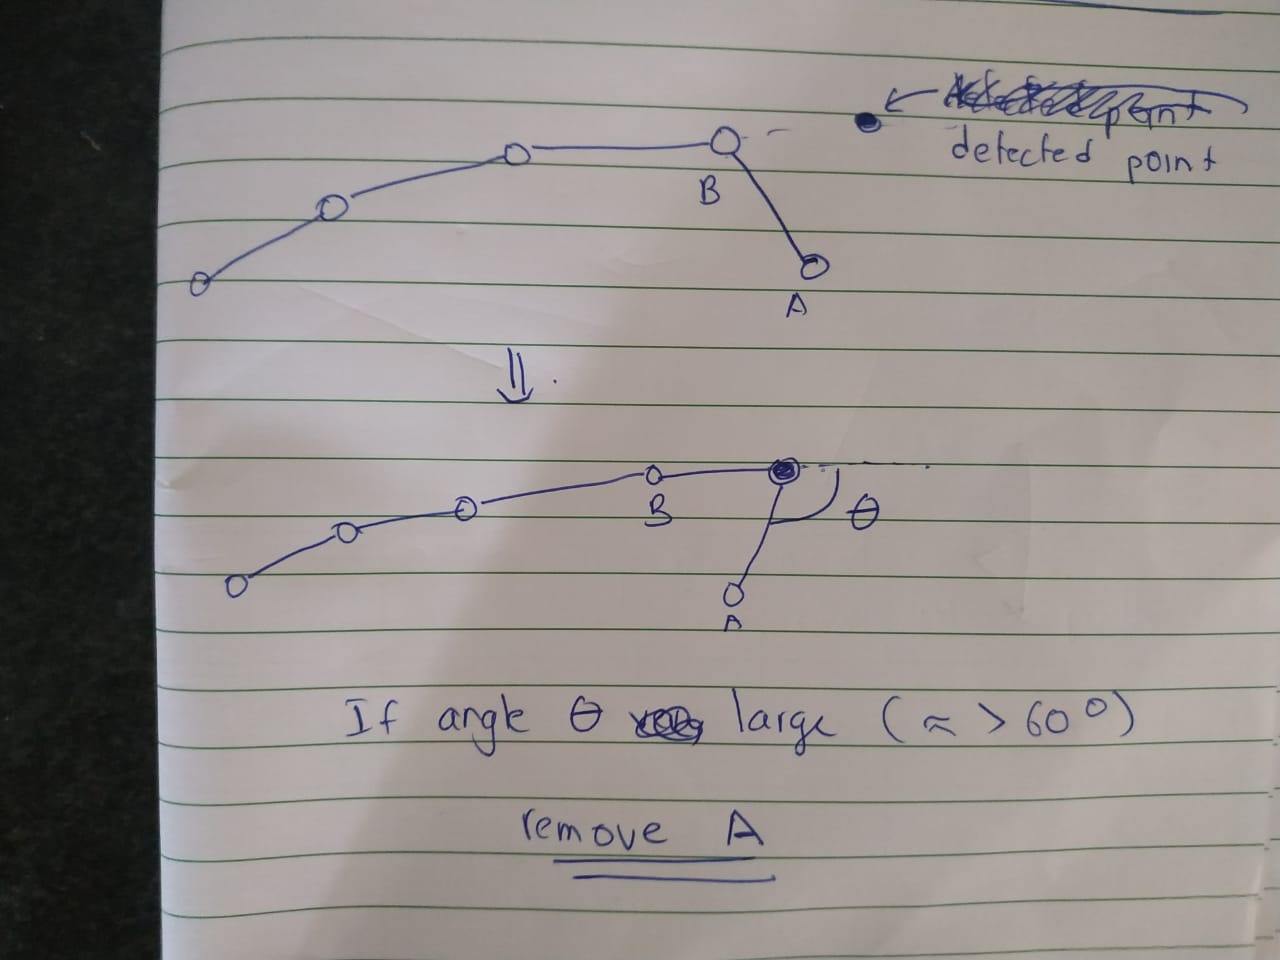 point
detected point
B
A
B
θ
A
If angle θ large (≈ > 60°)
remove A